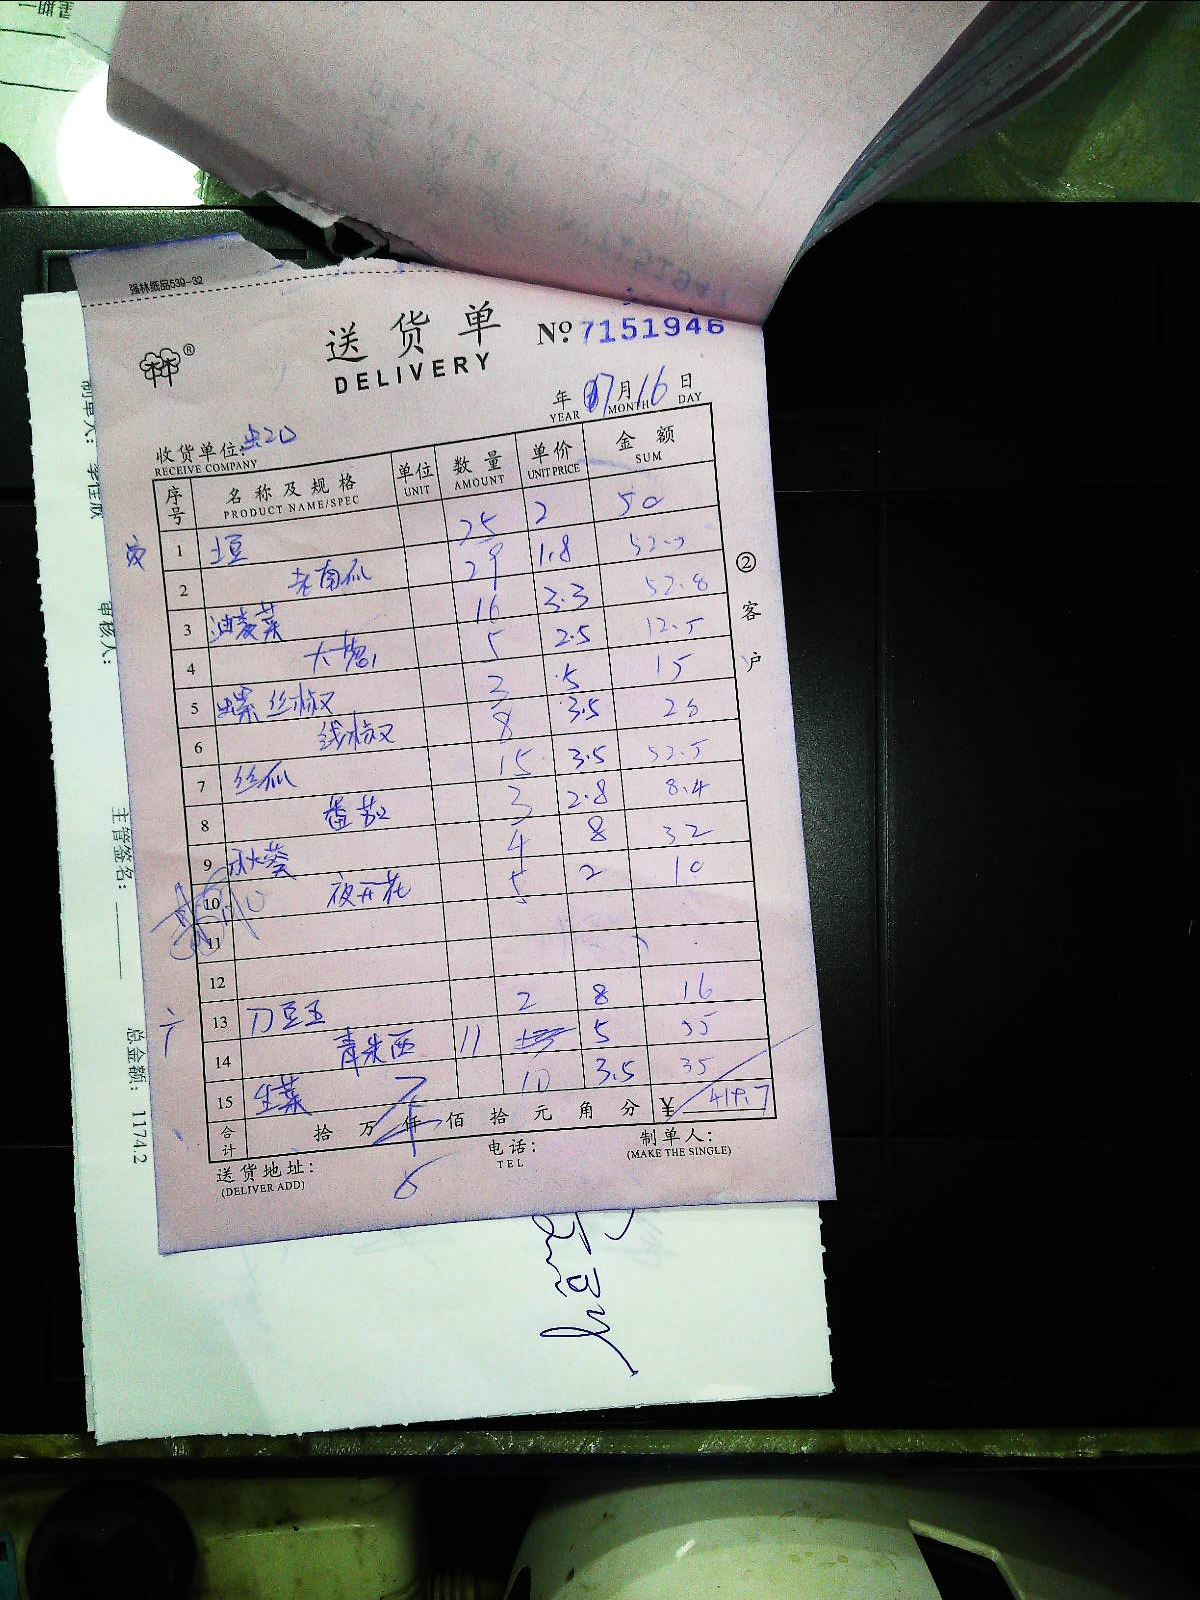 星期一
强林纸品539-32
送货单
DELIVERY
Nº 7151946
年 07 月 16 日
YEAR MONTH DAY
收货单位:
RECEIVE COMPANY
序号 名称及规格 单位 数量 单价 金额
PRODUCT NAME/SPEC UNIT AMOUNT UNIT PRICE SUM
1 土豆 25 2 50
2 老南瓜 29 1.8 52.2
3 油麦菜 16 3.3 52.8
4 大葱 5 2.5 12.5
5 螺丝椒 3 5 15
6 线椒 8 3.5 28
7 丝瓜 15 3.5 52.5
8 番茄 3 2.8 8.4
9 秋葵 4 8 32
10 夜开花 5 2 10
11
12
13 刀豆 2 8 16
14 青米西 11 5 55
15 生菜 10 3.5 35
合计 拾 万 仟 佰 拾 元 角 分 ¥ 419.7
送货地址:
(DELIVER ADD)
电话:
TEL
制单人:
(MAKE THE SINGLE)
②客户
制单人:
审核人:
主管签名:
总金额: 1174.2